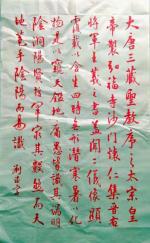 大唐三藏聖教序太宗皇
帝製弘福寺沙門懷仁集晉右
將軍王羲之書蓋聞二儀像顯
覆載以含生四時無形潛寒暑以化
物是以窺天鑑地庸愚皆識其端明
陰洞陽賢哲罕窮其數然而天
地苞乎陰陽而易識